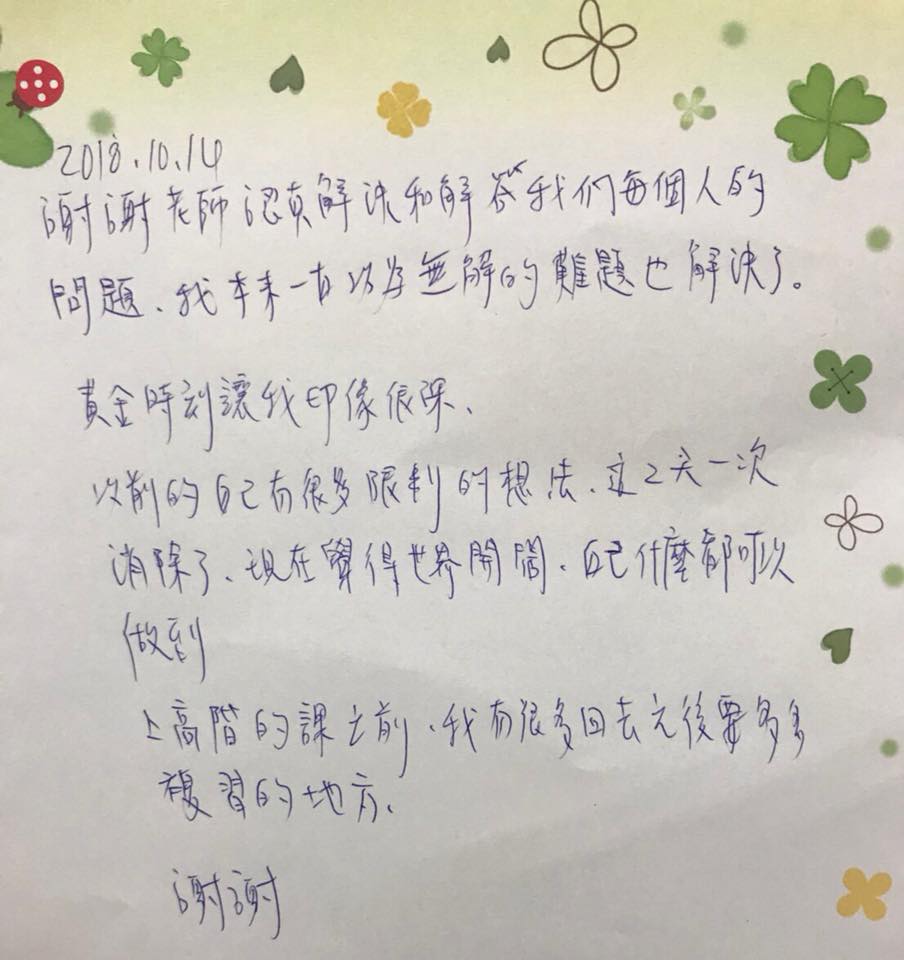 2018.10.14
謝謝老師認真解決和解答我们每個人的
問題、我本來一直以為無解的難題也解決了。
黃金時刻讓我印像很深、
以前的自己有很多限制的想法、這2天一次
消除了、現在覺得世界開闊、自己什麼都可以
做到
上高階的課之前、我有很多回去之後要多多
複習的地方、
謝謝